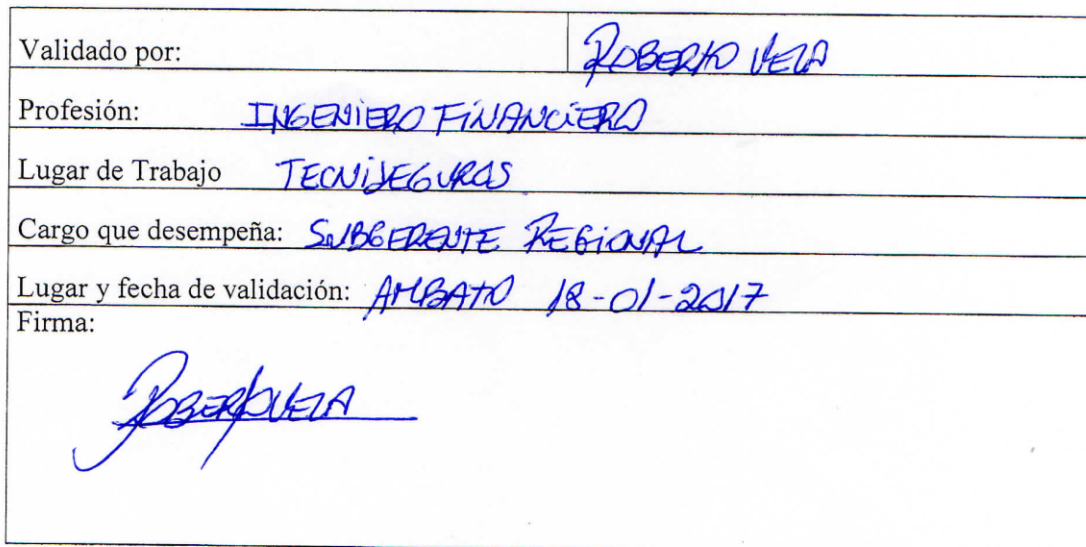 Validado por: ROBERTO VELA
Profesión: INGENIERO FINANCIERO
Lugar de Trabajo TECNISEGUROS
Cargo que desempeña: SUBGERENTE REGIONAL
Lugar y fecha de validación: AMBATO 18-01-2017
Firma:
ROBERTO VELA